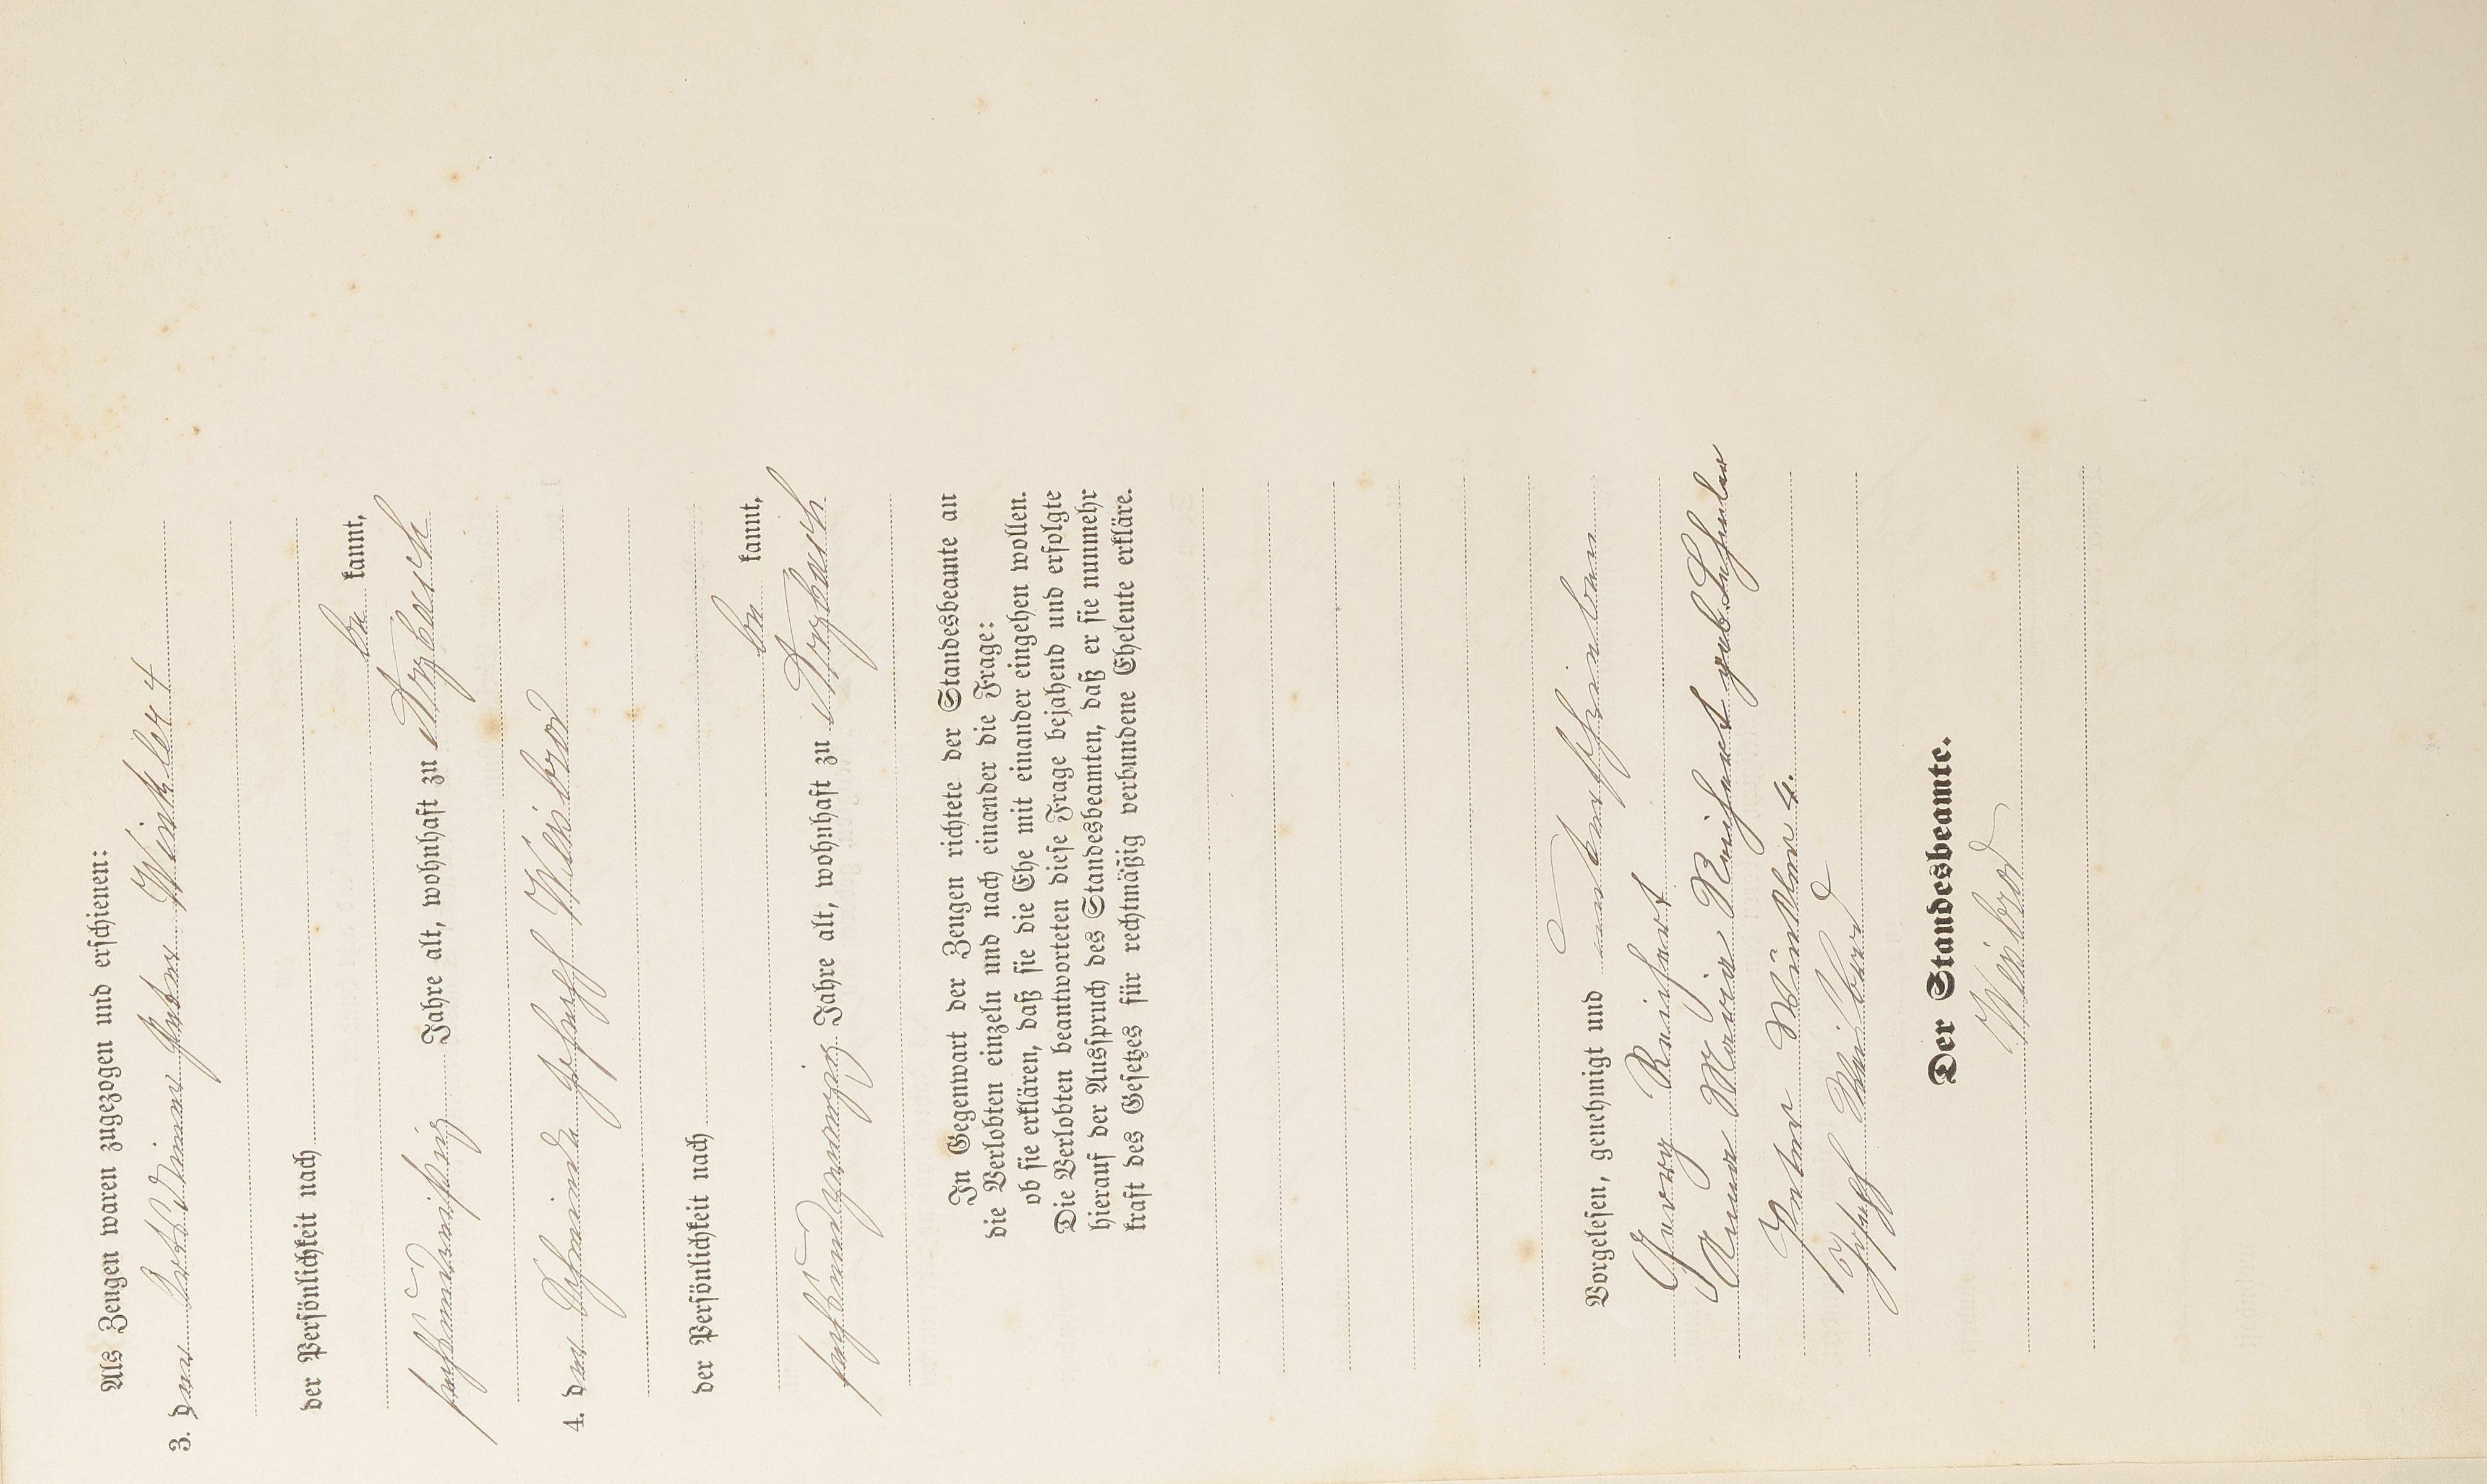 Als Zeugen waren zugezogen und erschienen:
3. der Ortsdiener Peter Winkler 4
der Persönlichkeit nach
be kannt,
sechsunddreißig Jahre alt, wohnhaft zu Arzbach
4. der Gehminde Joseph Weisbrod
der Persönlichkeit nach
be kannt,
sechsundzwanzig Jahre alt, wohnhaft zu Arzbach
In Gegenwart der Zeugen richtete der Standesbeamte an
die Verlobten einzeln und nach einander die Frage:
ob sie erklären, daß sie die Ehe mit einander eingehen wollen.
Die Verlobten beantworteten diese Frage bejahend und erfolgte
hierauf der Ausspruch des Standesbeamten, daß er sie nunmehr
kraft des Gesetzes für rechtmäßig verbundene Eheleute erkläre.
Vorgelesen, genehmigt und unterschrieben
Georg Reichert
Anna Maria Reichert geb.
Peter Winkler 4.
Joseph Weisbrod
Der Standesbeamte.
Weisbrod